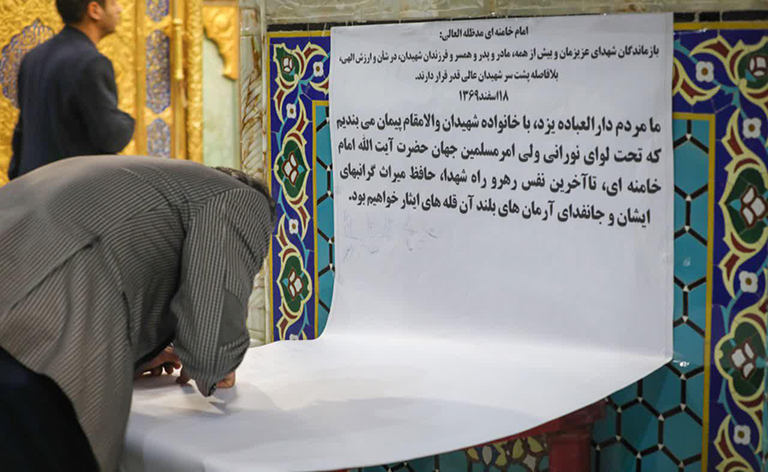 امام خامنه ای مدظله العالی:
بازماندگان شهدای عزیزمان و بیش از همه، مادر و پدر و همسر و فرزندان شهیدان، در شأن و ارزش الهی،
بلافاصله پشت سر شهیدان عالی قدر قرار دارند.
۱۸اسفند۱۳۶۹
ما مردم دارالعباده یزد، با خانواده شهیدان والامقام پیمان می بندیم
که تحت لوای نورانی ولی امرمسلمین جهان حضرت آیت الله امام
خامنه ای، تاآخرین نفس رهرو راه شهدا، حافظ میراث گرانبهای
ایشان و جانفدای آرمان های بلند آن قله های ایثار خواهیم بود.